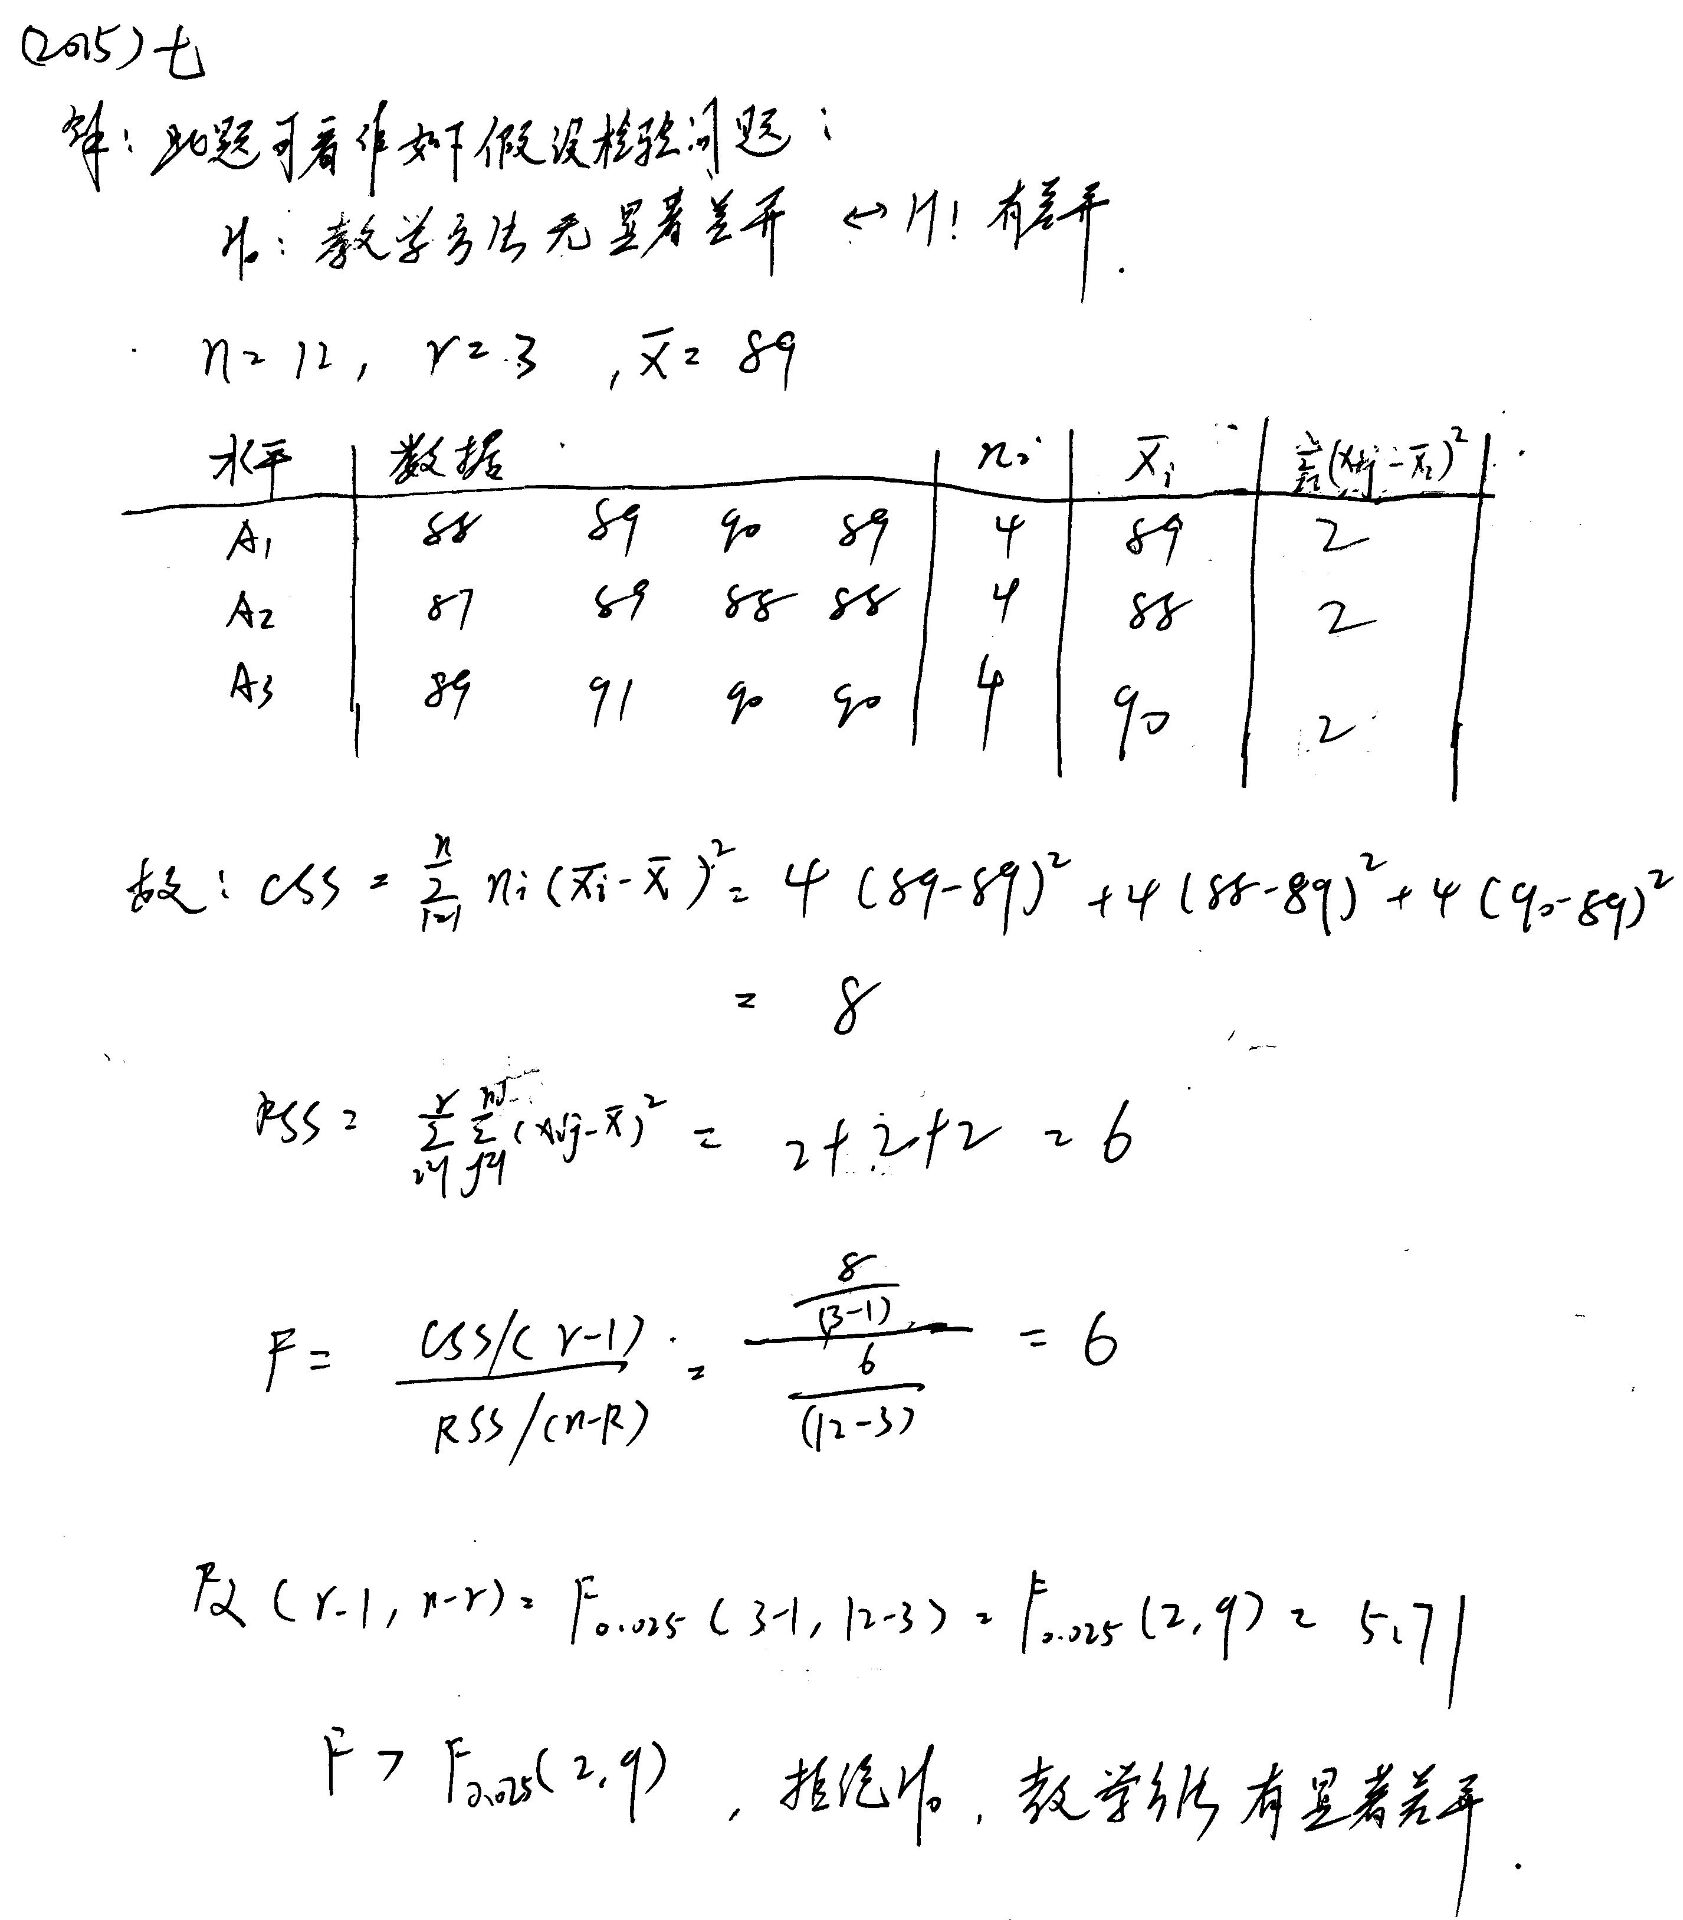 (2015) 七
解：此题可看作如下假设检验问题：
H₀：教学方法无显著差异 ↔ H₁ 有差异.
n = 12, r = 3, x̄ = 89
水平 数据 nᵢ x̄ᵢ Σ(xᵢⱼ - x̄ᵢ)²
A₁ 88 89 90 89 4 89 2
A₂ 87 89 88 88 4 88 2
A₃ 89 91 90 90 4 90 2
故：CSS = Σⁿᵢ₌₁ nᵢ(x̄ᵢ - x̄)² = 4(89-89)² + 4(88-89)² + 4(90-89)²
= 8
RSS = Σʳᵢ₌₁ Σⁿʲⱼ₌₁ (xᵢⱼ - x̄)² = 2+2+2 = 6
F = CSS/(r-1) / RSS/(n-R) = 8/(3-1) / 6/(12-3) = 6
Fα(r-1, n-r) = F₀.₀₂₅(3-1, 12-3) = F₀.₀₂₅(2,9) = 5.71
F > F₀.₀₂₅(2,9), 拒绝H₀, 教学方法有显著差异.